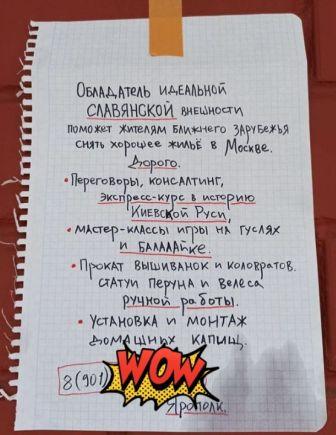 Обладатель идеальной
славянской внешности
поможет жителям ближнего зарубежья
снять хорошее жильё в Москве.
Дорого.
• Переговоры, консалтинг,
экспресс-курс в историю
Киевской Руси,
• мастер-классы игры на гуслях
и балалайке.
• Прокат вышиванок и коловратов.
статуи Перуна и Велеса
ручной работы.
• Установка и монтаж
домашних капищ.
WOW
8(901)
Ярополк.